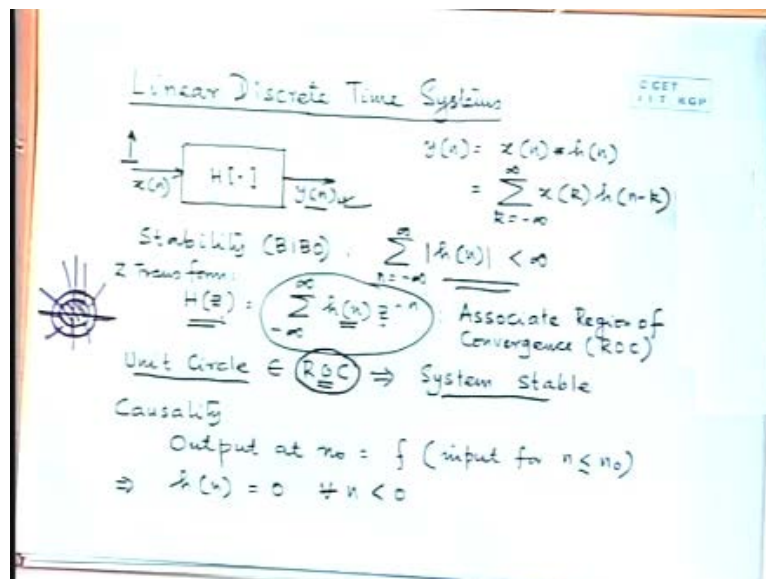 Linear Discrete Time Systems
CCET
IIT KGP
x(n)
H[·]
y(n)
y(n) = x(n) * h(n)
∞
= Σ x(k) h(n-k)
k=-∞
Stability (BIBO) : ∞ Σ n=-∞ |h(n)| < ∞
Z Transform:
H(z) = ∞ Σ -∞ h(n) z^-n : Associate Region of
Convergence (ROC)
Unit Circle ∈ ROC ⇒ System Stable
Causality
Output at n₀ = f (input for n ≤ n₀)
⇒ h(n) = 0 ∀ n < 0